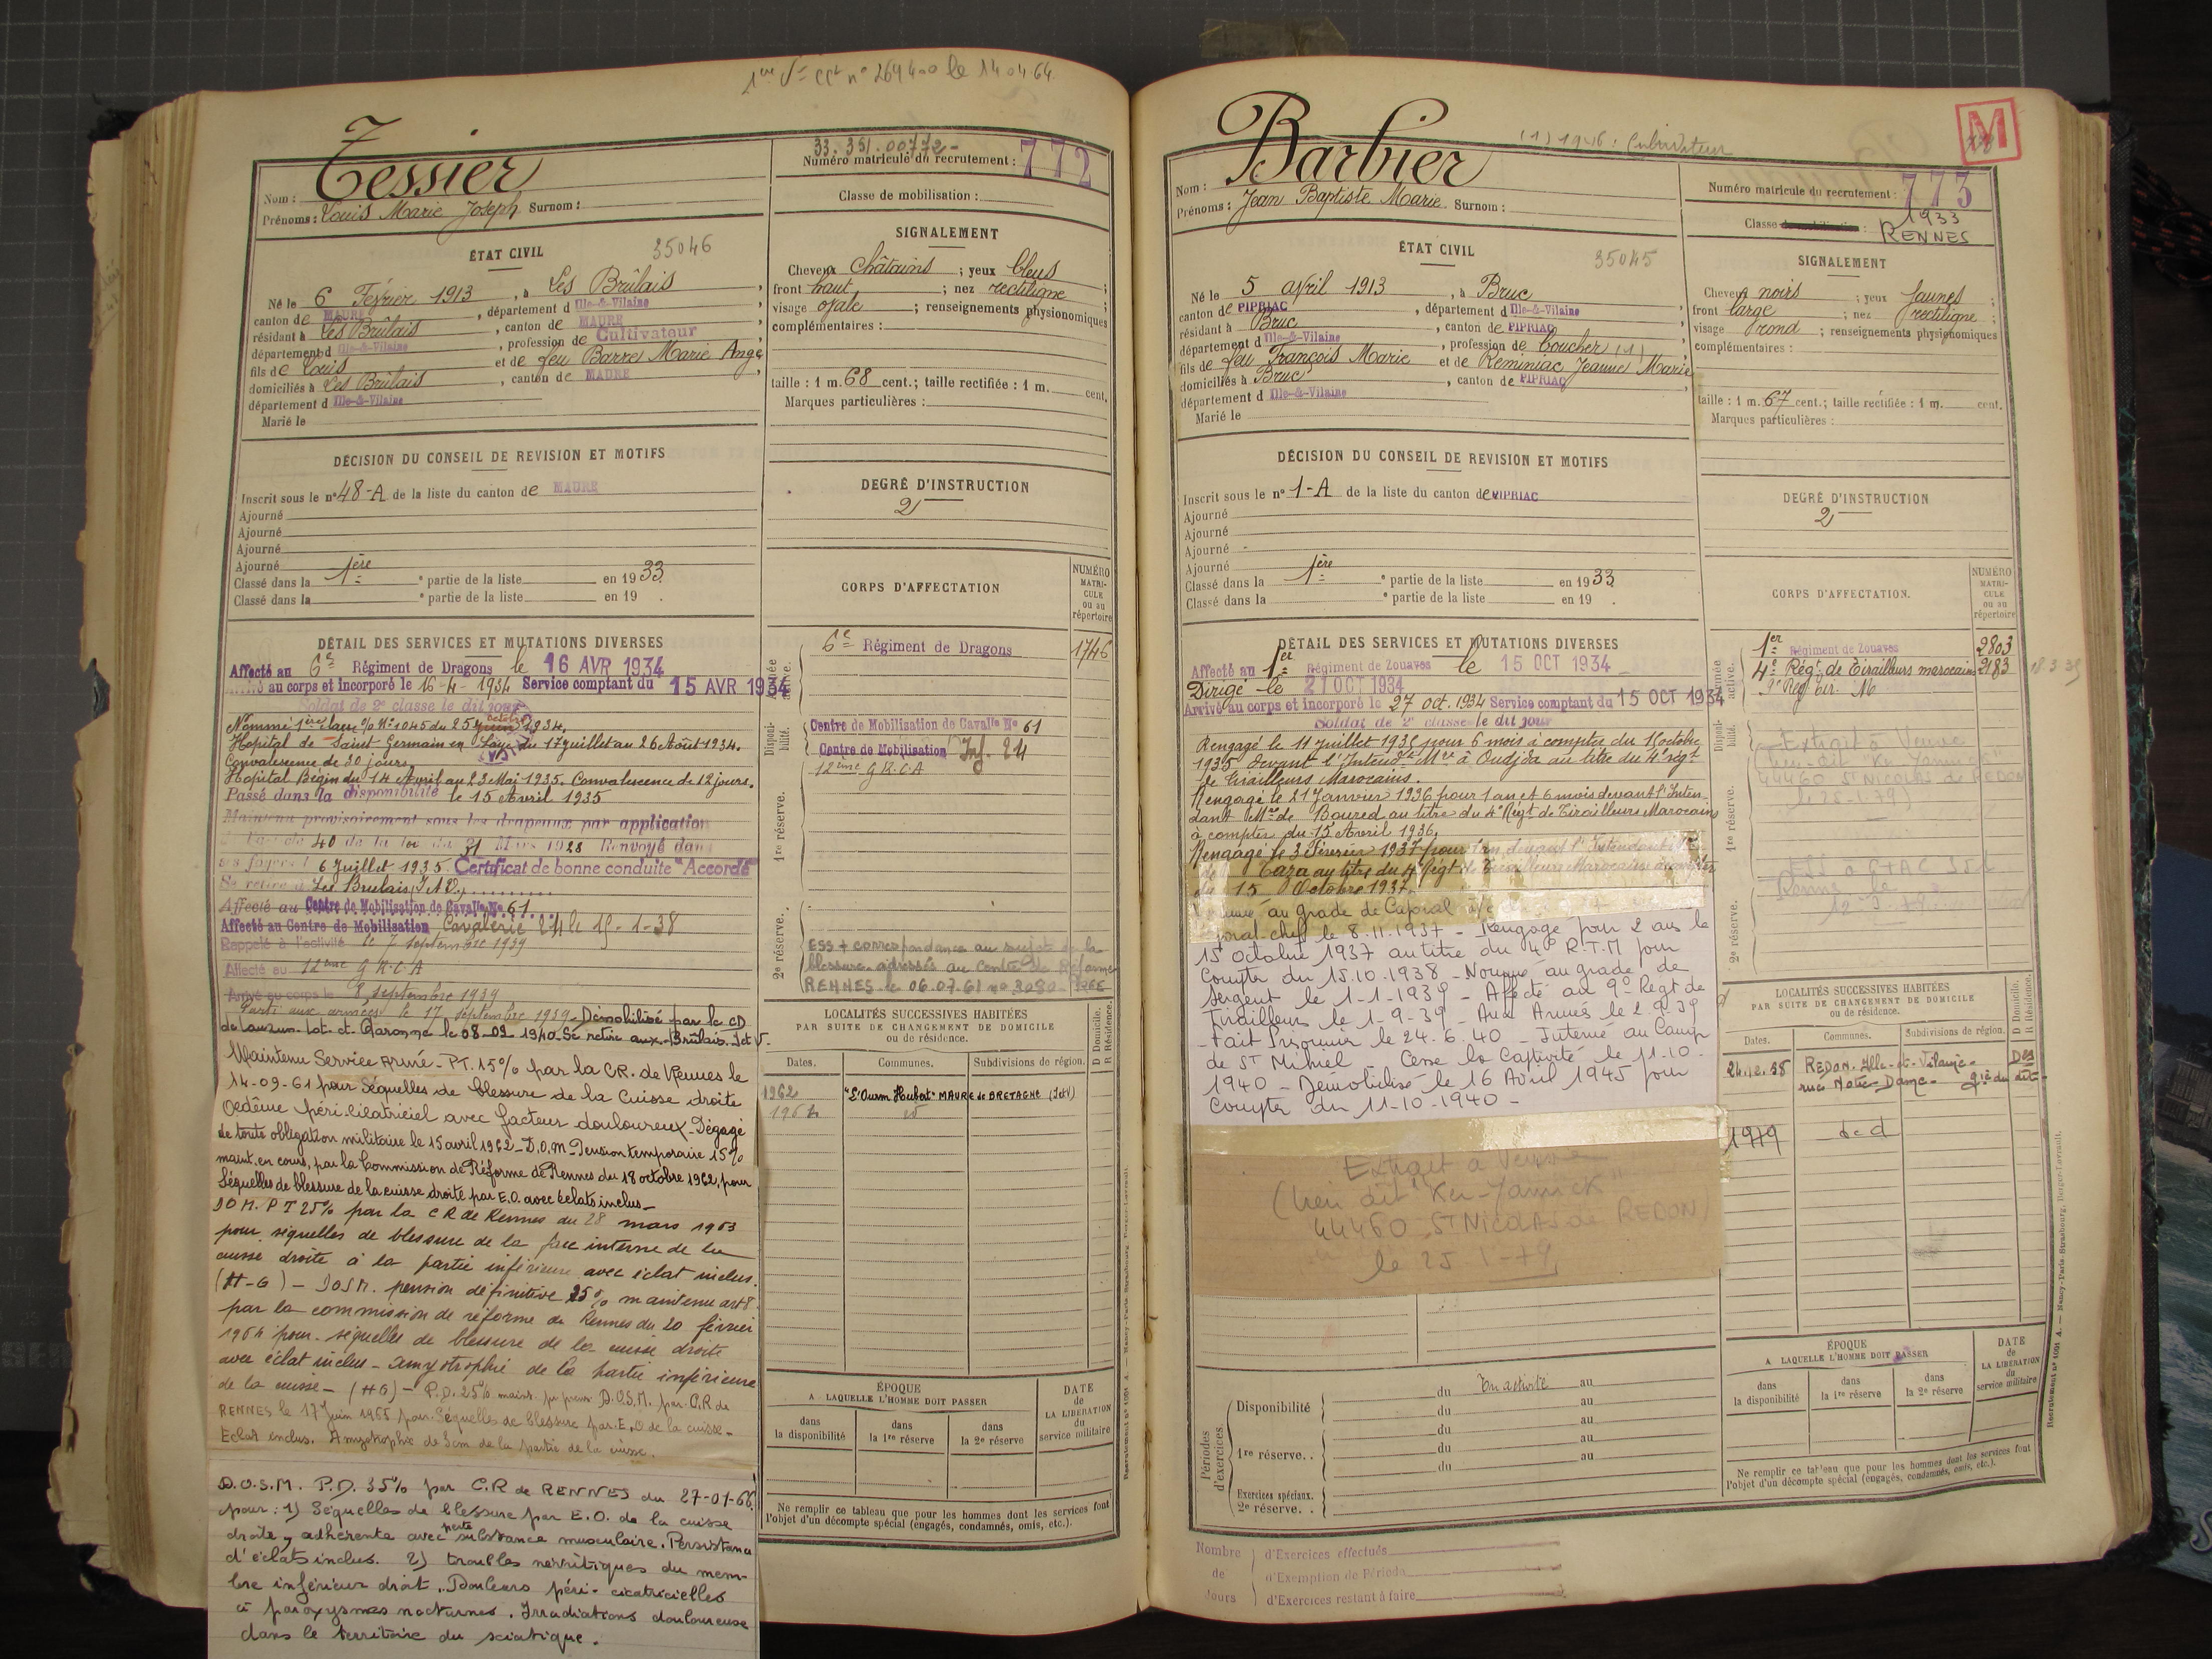 1ère Sie CCt n° 269400 le 14 04 64
Tessier
Nom :
Prénoms : Louis Marie Joseph Surnom :
33.351.00772-
Numéro matricule du recrutement : 772
Classe de mobilisation :
ÉTAT CIVIL
35046
Né le 6 Février 1913, à Les Brûlais,
canton de MAURE, département d Ille-&-Vilaine
résidant à Les Brûlais, canton de MAURE
département d Ille-&-Vilaine, profession de Cultivateur
fils de Louis et de feu Barre Marie Ange
domiciliés à Les Brûlais, canton de MAURE
département d Ille-&-Vilaine
Marié le
SIGNALEMENT
Cheveux châtains ; yeux bleus
front haut ; nez rectiligne ;
visage ovale ; renseignements physionomiques
complémentaires :
taille : 1 m. 68 cent.; taille rectifiée : 1 m. cent.
Marques particulières :
DÉCISION DU CONSEIL DE REVISION ET MOTIFS
Inscrit sous le n° 48-A de la liste du canton de MAURE
Ajourné
Ajourné
Ajourné
Ajourné
Classé dans la 1ère partie de la liste en 1933
Classé dans la e partie de la liste en 19 .
DEGRÉ D'INSTRUCTION
2
CORPS D'AFFECTATION
NUMÉRO
MATRI-
CULE
ou au
répertoire
DÉTAIL DES SERVICES ET MUTATIONS DIVERSES
Affecté au 6e Régiment de Dragons le 16 AVR 1934
au corps et incorporé le 16-4-1934 Service comptant du 15 AVR 1934
Soldat de 2e classe le dit jour
Nommé 1ère classe N° 1045 du 25 octobre 1934.
Hopital de Saint Germain en Laye du 17 juillet au 26 Août 1934.
Convalescence de 30 jours.
Hopital Bégin du 14 Avril au 23 Mai 1935. Convalescence de 12 jours.
Passé dans la disponibilité le 15 Avril 1935
Maintenu provisoirement sous les drapeaux par application
40 de la loi du 31 Mars 1928 Renvoyé dans
ses foyers le 6 Juillet 1935 Certificat de bonne conduite "Accordé"
Se retire à Les Brulais, I & V.
Affecté au Centre de Mobilisation de Cavalie No 61
Affecté au Centre de Mobilisation Cavalerie 24 le 15-1-38
Rappelé à l'activité le 7 septembre 1939
Affecté au 12ème G R C A
Arrivé au corps le 8 septembre 1939
Parti aux armées le 17 septembre 1939 - Démobilisé par le CD
de Lauzun Lot et Garonne le 08-09 1940 - Se retire aux Brûlais. I et V.
Maintenu Service armé - P.T. 15% par la CR. de Rennes le
14-09-61 pour Séquelles de blessure de la cuisse droite
Oedème péri-cicatriciel avec facteur douloureux - Dégagé
de toute obligation militaire le 15 avril 1962 - D.O.M - Pension temporaire 15%
maint. en cours, par la Commission de Réforme de Rennes du 18 octobre 1962, pour
Séquelles de blessure de la cuisse droite par E.O. avec éclats inclus -
D O M. P T 25% par la C R de Rennes du 28 mars 1963
pour séquelles de blessure de la face interne de la
cuisse droite à la partie inférieure avec éclat inclus.
(H-G) - DOSM. pension définitive 25% maintenue art 8
par la commission de réforme de Rennes du 20 février
1964 pour séquelles de blessure de la cuisse droite
avec éclat inclus - amyotrophie de la partie inférieure
de la cuisse - (HG) - P.D. 25% maint. D.O.S.M. par C.R de
RENNES le 17 Juin 1965 pour Séquelles de blessure par E.O de la cuisse -
Eclat inclus. Amyotrophie de 3cm de la partie de la cuisse.
D.O.S.M. P.D. 35% par C.R de RENNES du 27-01-66
pour : 1) Séquelles de blessure par E.O. de la cuisse
droite, adhérente avec perte substance musculaire. Persistance
d'éclats inclus. 2) troubles névritiques du mem-
bre inférieur droit. Douleurs péri-cicatricielles
à paroxysmes nocturnes. Irradiations douloureuse
dans le territoire du sciatique.
Armée
active.
6e Régiment de Dragons 1746
Disponi-
bilité.
Centre de Mobilisation de Cavalie No 61
Centre de Mobilisation Inf. 24
12ème G R C A
1re réserve.
2e réserve.
ESS + correspondance au sujet de la
blessure adressés au Centre de Réforme
RENNES le 06.07.61 n° 3080
LOCALITÉS SUCCESSIVES HABITÉES
PAR SUITE DE CHANGEMENT DE DOMICILE
ou de résidence.
D Domicile.
R Résidence.
Dates. Communes. Subdivisions de région.
1962 "L'Ourm Hubert" MAURE de BRETAGNE (I et V)
1964 id
ÉPOQUE
A LAQUELLE L'HOMME DOIT PASSER
DATE
de
LA LIBÉRATION
du
service militaire
dans
la disponibilité
dans
la 1re réserve
dans
la 2e réserve
Ne remplir ce tableau que pour les hommes dont les services font
l'objet d'un décompte spécial (engagés, condamnés, omis, etc.).
Barbier
(1) 1946 : Cultivateur
M
Nom :
Prénoms : Jean Baptiste Marie Surnom :
Numéro matricule du recrutement : 773
Classe de mobilisation : 1933
RENNES
ÉTAT CIVIL
35045
Né le 5 avril 1913, à Bruc,
canton de PIPRIAC, département d Ille-&-Vilaine
résidant à Bruc, canton de PIPRIAC
département d Ille-&-Vilaine, profession de boucher (1)
fils de feu François Marie et de Reminiac Jeanne Marie
domiciliés à Bruc, canton de PIPRIAC
département d Ille-&-Vilaine
Marié le
SIGNALEMENT
Cheveux noirs ; yeux jaunes ;
front large ; nez rectiligne ;
visage rond ; renseignements physionomiques
complémentaires :
taille : 1 m. 67 cent.; taille rectifiée : 1 m. cent.
Marques particulières :
DÉCISION DU CONSEIL DE REVISION ET MOTIFS
Inscrit sous le n° 1-A de la liste du canton de PIPRIAC
Ajourné
Ajourné
Ajourné
Ajourné
Classé dans la 1ère partie de la liste en 1933
Classé dans la e partie de la liste en 19 .
DEGRÉ D'INSTRUCTION
2
CORPS D'AFFECTATION.
NUMÉRO
MATRI-
CULE
ou au
répertoire
DÉTAIL DES SERVICES ET MUTATIONS DIVERSES
Affecté au 1er Régiment de Zouaves le 15 OCT 1934
Dirigé le 21 OCT 1934
Arrivé au corps et incorporé le 27 oct. 1934 Service comptant du 15 OCT 1934
Soldat de 2e classe le dit jour
Rengagé le 11 juillet 1935 pour 6 mois à compter du 15 octobre
1935 devant l'Intendt Mre à Oudjda au titre du 4e régt
de Tirailleurs Marocains.
Rengagé le 21 Janvier 1936 pour 1 an et 6 mois devant l'Inten-
dant Mre de Boured au titre du 4e Régt de Tirailleurs Marocains
à compter du 15 Avril 1936.
Rengagé le 3 Février 1937 pour 1 an devant l'Intendant
de Taza au titre du 4e Régt de Tirailleurs Marocains à compter
du 15 Octobre 1937.
Nommé au grade de Caporal
poral-chef le 8.11.1937 - Rengagé pour 2 ans le
15 octobre 1937 au titre du 4e R.T.M pour
compter du 15.10.1938 - Nommé au grade de
Sergent le 1-1-1939 - Affecté au 9e Régt de
Tirailleurs le 1-9-39 - Aux Armées le 2.9.39
- Fait Prisonnier le 24.6.40 - Interné au Camp
de St Mihiel - Cesse la Captivité le 11-10.
1940 - Démobilisé le 16 Avril 1945 pour
compter du 11-10-1940 -
Extrait à Veuve
(lieu dit "Ker-Yannick"
44460 ST NICOLAS de REDON)
le 25-1-79
Armée
active.
1er Régiment de Zouaves 2803
4e Régt de Tirailleurs marocains 2183 18 3 35
9e Reg Tir. M
Disponi-
bilité.
Extrait à Veuve
lieu-dit "Ker Yannick"
44460 ST NICOLAS de REDON
le 25-1-79
1re réserve.
2e réserve.
LOCALITÉS SUCCESSIVES HABITÉES
PAR SUITE DE CHANGEMENT DE DOMICILE
ou de résidence.
D Domicile.
R Résidence.
Dates. Communes. Subdivisions de région.
24.12.38 REDON. Ille-et-Vilaine -
rue Notre-Dame -
1979 dcd
ÉPOQUE
A LAQUELLE L'HOMME DOIT PASSER
DATE
de
LA LIBÉRATION
du
service militaire
dans
la disponibilité
dans
la 1re réserve
dans
la 2e réserve
Ne remplir ce tableau que pour les hommes dont les services font
l'objet d'un décompte spécial (engagés, condamnés, omis, etc.).
Périodes
d'exercices
Disponibilité
du En activité au
du au
du au
1re réserve. .
du au
du au
Exercices spéciaux.
2e réserve. .
Nombre d'Exercices effectués
de d'Exemption de Période
Jours d'Exercices restant à faire
Recrutement N° 1091 A. — Nancy-Paris-Strasbourg, Berger-Levrault.